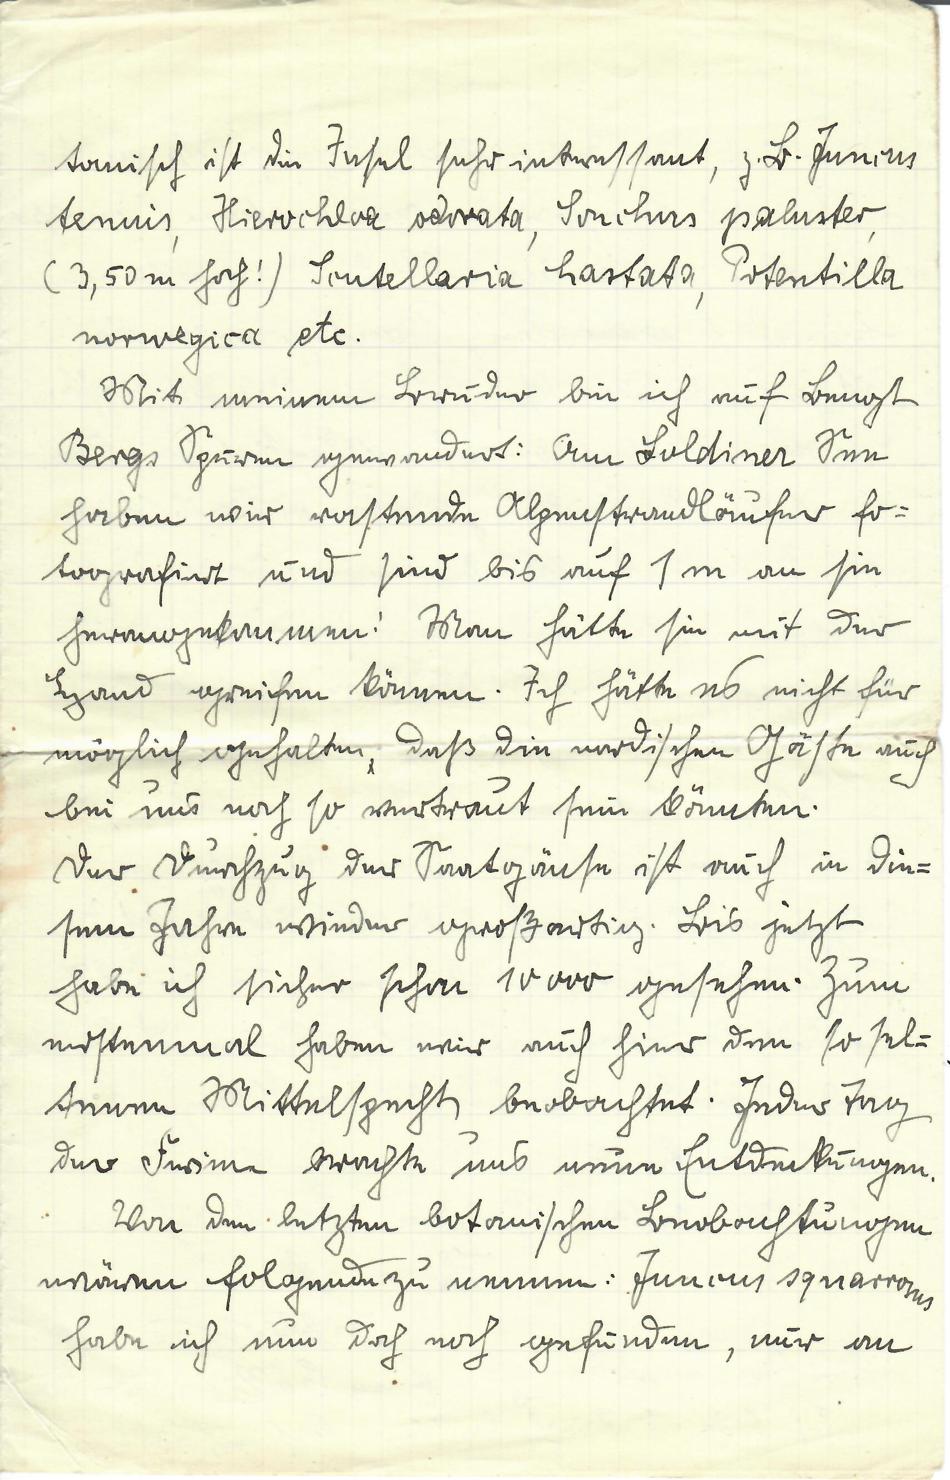 tanisch ist die Insel sehr interessant, z. B. Juncus
tenuis, Hierochloa odorata, Sonchus paluster,
(3,50 m hoch!) Scutellaria hastata, Potentilla
norwegica etc.
Mit meinem Bruder bin ich auf Bengt
Bergs Spuren gewandert: Am Soldiner See
haben wir rastende Alpenstrandläufer fo=
tografiert und sind bis auf 1 m an sie
herangekommen! Man hätte sie mit der
Hand greifen können. Ich hätte es nicht für
möglich gehalten, daß die nordischen Gäste auch
bei uns noch so vertraut sein könnten.
Der Durchzug der Saatgänse ist auch in die=
sem Jahre wieder großartig. Bis jetzt
habe ich sicher schon 10 000 gesehen. Zum
erstenmal haben wir auch hier den so sel=
tenen Mittelspecht beobachtet. Jeder Tag
der Ferien brachte uns neue Entdeckungen.
Von den letzten botanischen Beobachtungen
wären folgende zu nennen: Juncus squarrosus
habe ich nun doch noch gefunden, nur an